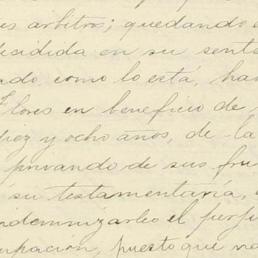 es árbitro; quedando e
ecidida en su sent
ado como lo está, ha
Flores en beneficio de
diez y ocho años, de la
privando de sus fru
su testamentaría,
ndemnizarles el perju
upación, puesto que no